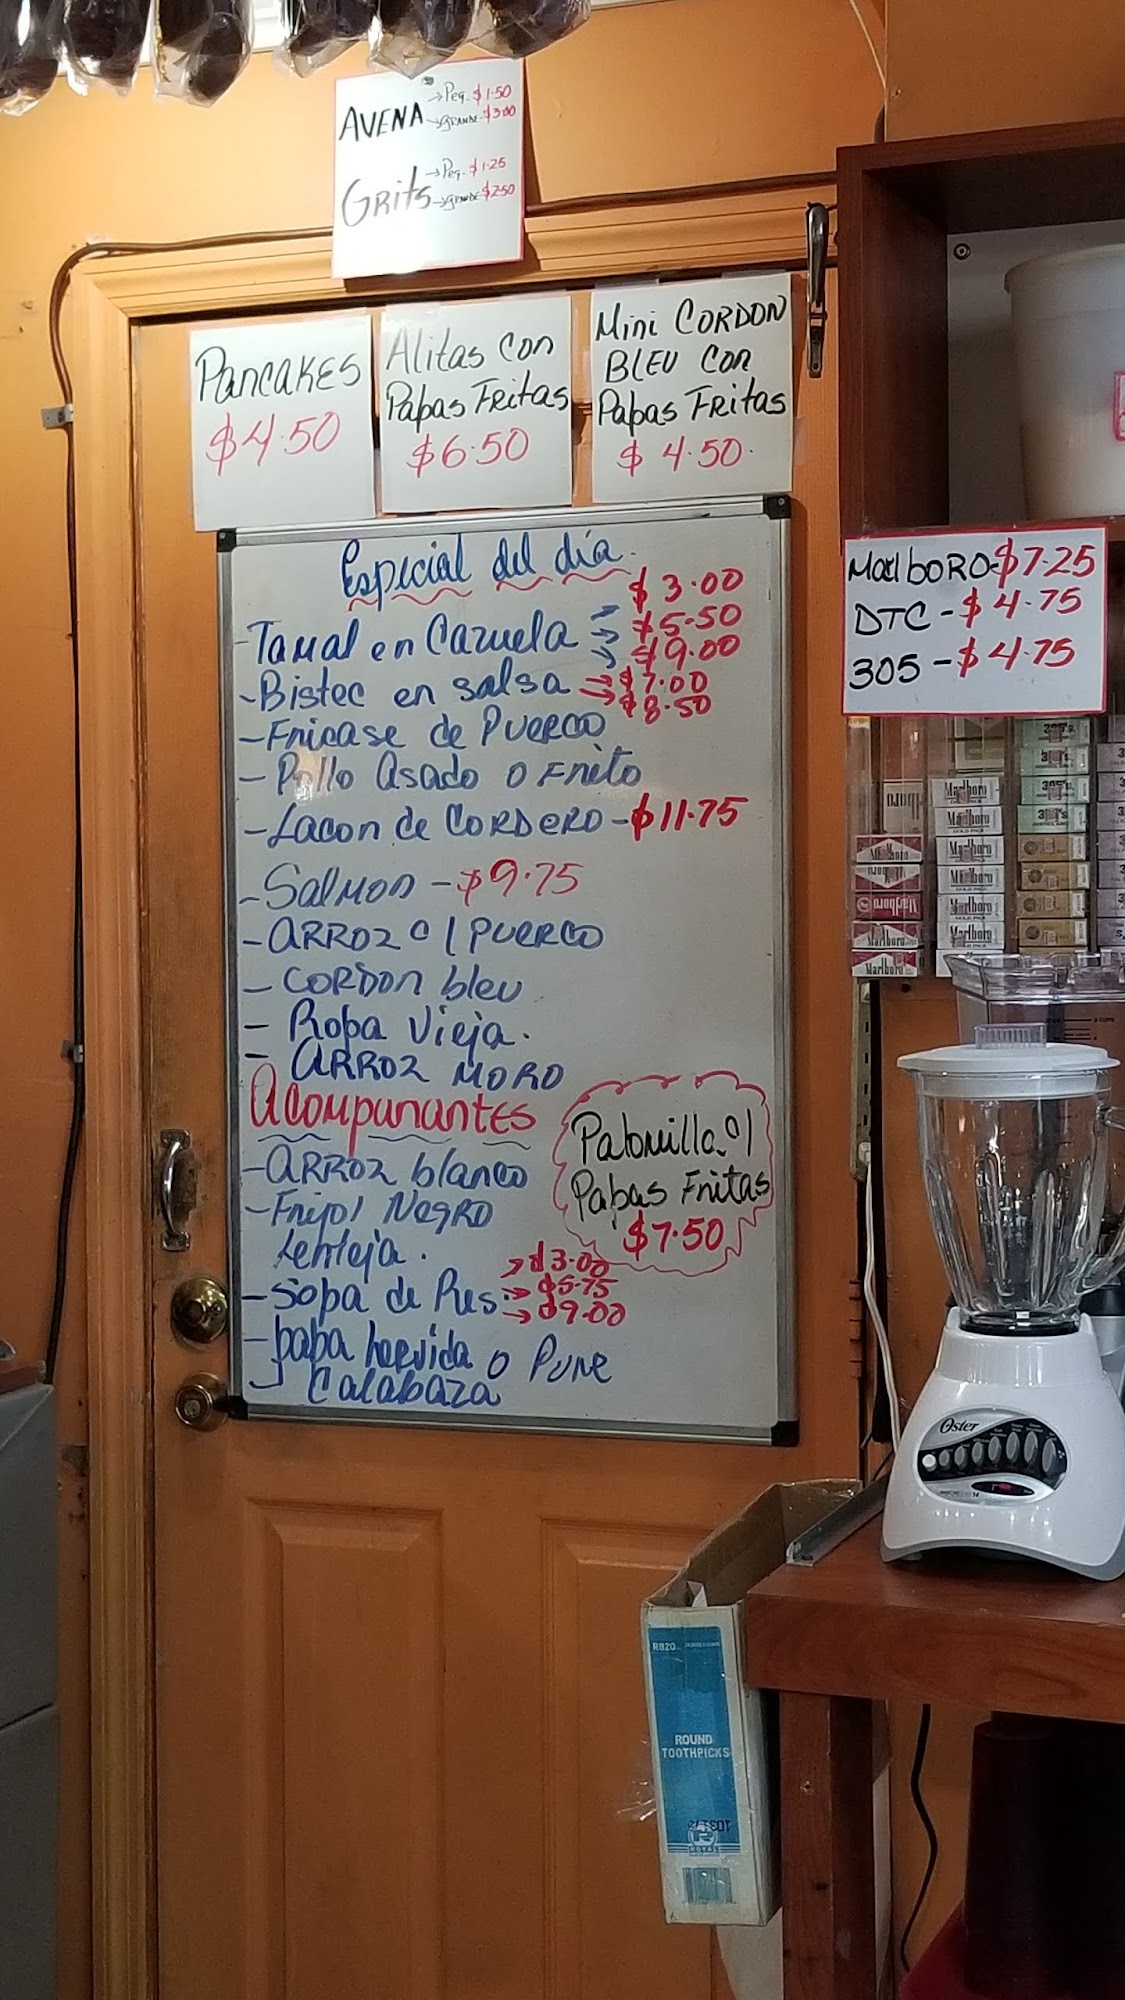 AVENA →Peq. $1.50
→GRANDE $3.00
Grits →Peq. $1.25
→GRANDE $2.50
PANCAKES
$4.50
Alitas con
Papas Fritas
$6.50
Mini CORDON
BLEU con
Papas FRitas
$ 4.50.
Especial del día.
- Tamal en Cazuela → $3.00
→ $5.50
→ $9.00
- Bistec en salsa → $7.00
→ $8.50
- Fricase de PUERCO
- Pollo Asado o Frito
- Lacon de CORDERO - $11.75
- Salmon - $9.75
- ARROZ c/ PUERCO
- CORDON bleu
- Ropa Vieja.
- ARROZ MORO
Acompanantes
- ARROZ blanco
- Frijol NegRO
Lenteja.
- Sopa de Res. → $3.00
→ $5.75
→ $9.00
- papa hervida o PURE
- Calabaza
Palomilla c/
Papas Fritas
$7.50
MarlboRO-$7.25
DTC - $4.75
305 - $4.75
Marlboro
Marlboro
Marlboro
Marlboro
Marlboro
Marlboro
Marlboro
Marlboro
Marlboro
Marlboro
Marlboro
305's
305's
Oster
RB20
ROUND
TOOTHPICKS
ROYAL